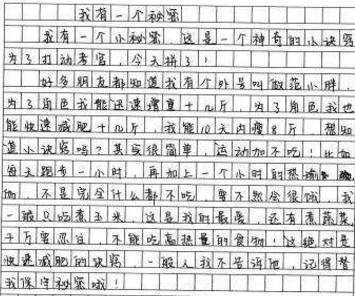 我有一个秘密
我有一个小秘密 这是一个神奇的小诀窍
为了打动考官，今天拼了！
好多朋友都知道我有个外号叫做范小胖，
为了角色我能迅速增重十几斤，为了角色我也
能快速减肥十几斤，我能10天内瘦8斤 想知
道小诀窍吗？其实很简单 运动加不吃！比如
每天跑步一小时，再加上一个小时的热瑜
伽 不是完全什么都不吃 要不然会很饿，我
一般只吃煮玉米，这是我的最爱 还有煮蔬菜，
千万要忍住，不能吃高热量的食物！这绝对是
快速减肥的诀窍 一般人我不告诉他，记得替
我保守秘密哦！